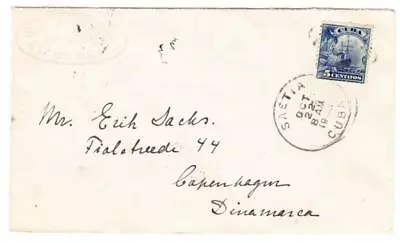 CUBA
5 CENTAVOS
SAETIA
OCT
22
8 AM
19
CUBA
Mr. Erik Sacks.
Fiolstræde 44
Copenhagen
Dinamarca